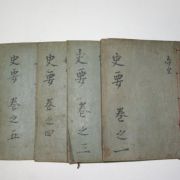 史要 卷之一
史要 卷之三
史要 卷之四
史要 卷之五